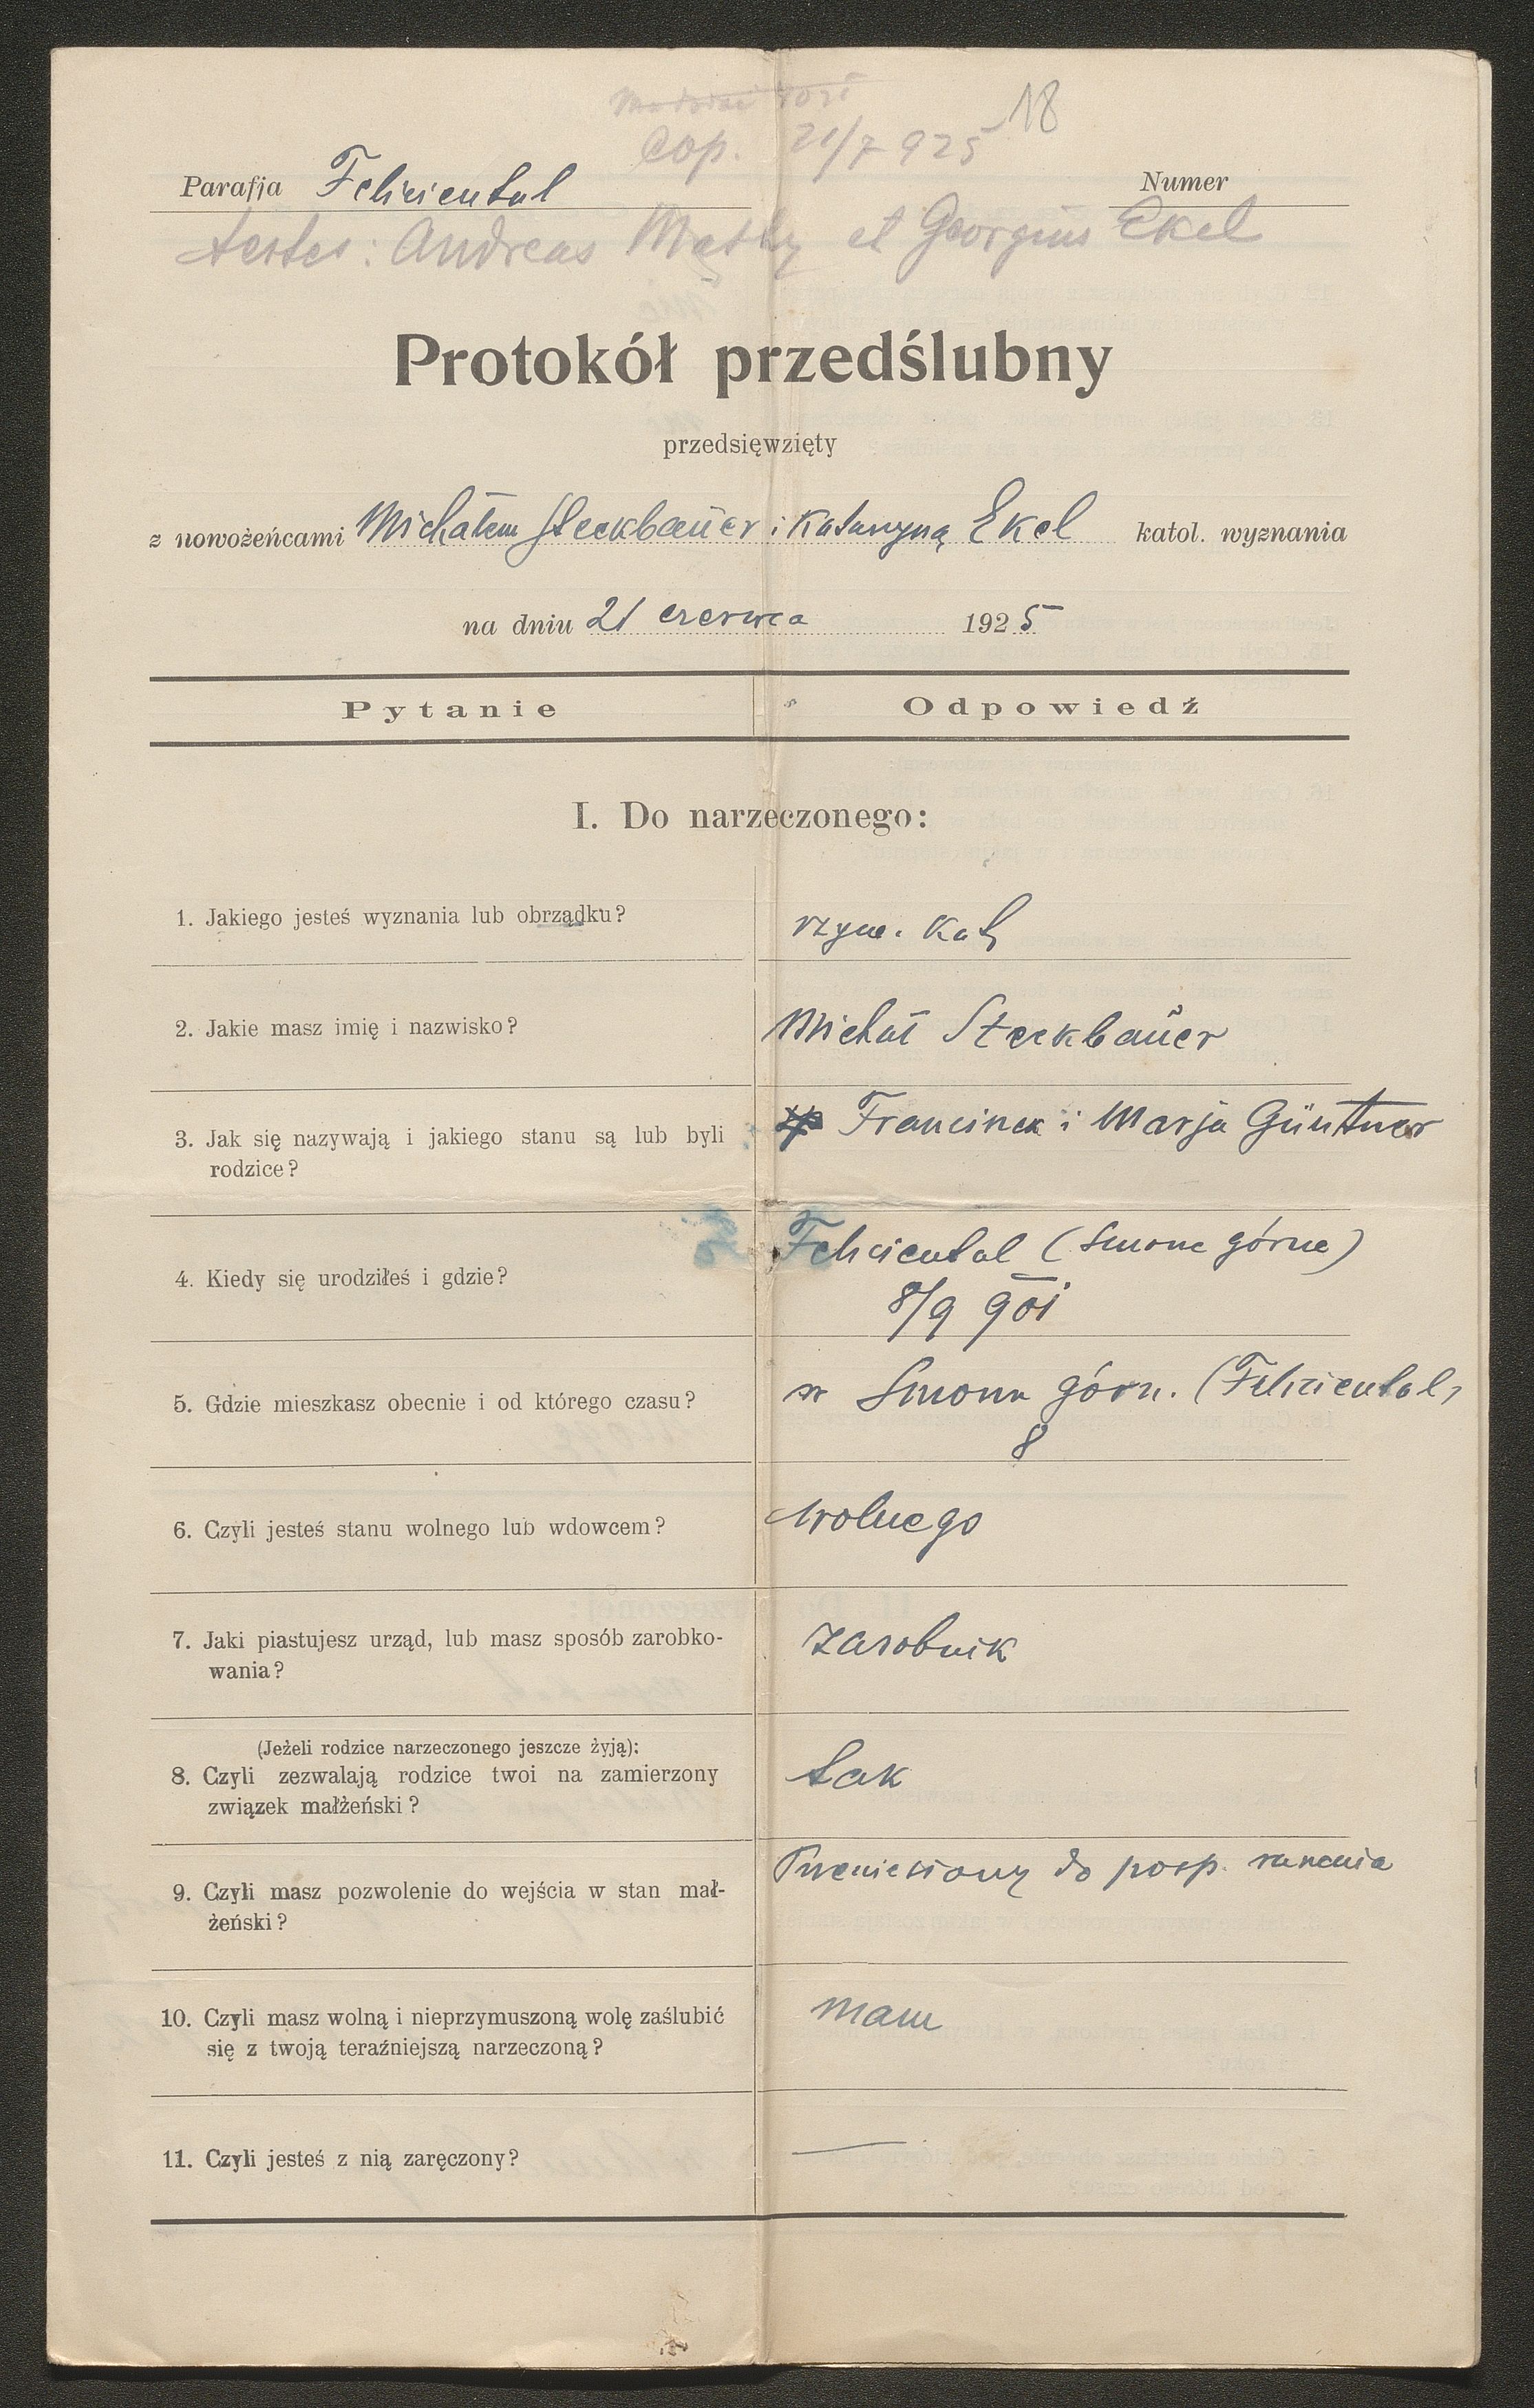 18
Cop. 21/7 925
Parafja Feliciental Numer
testes: Andreas Matky et Georgius Ekel
Protokół przedślubny
przedsięwzięty
z nowożeńcami Michałem Steckbaŭer i Katarzyną Ekel katol. wyznania
na dniu 21 czerwca 1925
Pytanie Odpowiedź
I. Do narzeczonego:
1. Jakiego jesteś wyznania lub obrządku? rzym. kat,
2. Jakie masz imię i nazwisko? Michał Steckbaŭer
3. Jak się nazywają i jakiego stanu są lub byli Franciszek i Marja Günttner
rodzice?
Feliciental (Smorze górne)
4. Kiedy się urodziłeś i gdzie?
8/9 901
5. Gdzie mieszkasz obecnie i od którego czasu? w Smorzu górn. (Feliciental,
8
6. Czyli jesteś stanu wolnego lub wdowcem? wolnego
7. Jaki piastujesz urząd, lub masz sposób zarobko- zarobnik
wania?
(Jeżeli rodzice narzeczonego jeszcze żyją):
8. Czyli zezwalają rodzice twoi na zamierzony tak
związek małżeński?
Przeniesiony do posp. ruszenia
9. Czyli masz pozwolenie do wejścia w stan mał-
żeński?
10. Czyli masz wolną i nieprzymuszoną wolę zaślubić mam
się z twoją teraźniejszą narzeczoną?
11. Czyli jesteś z nią zaręczony? —